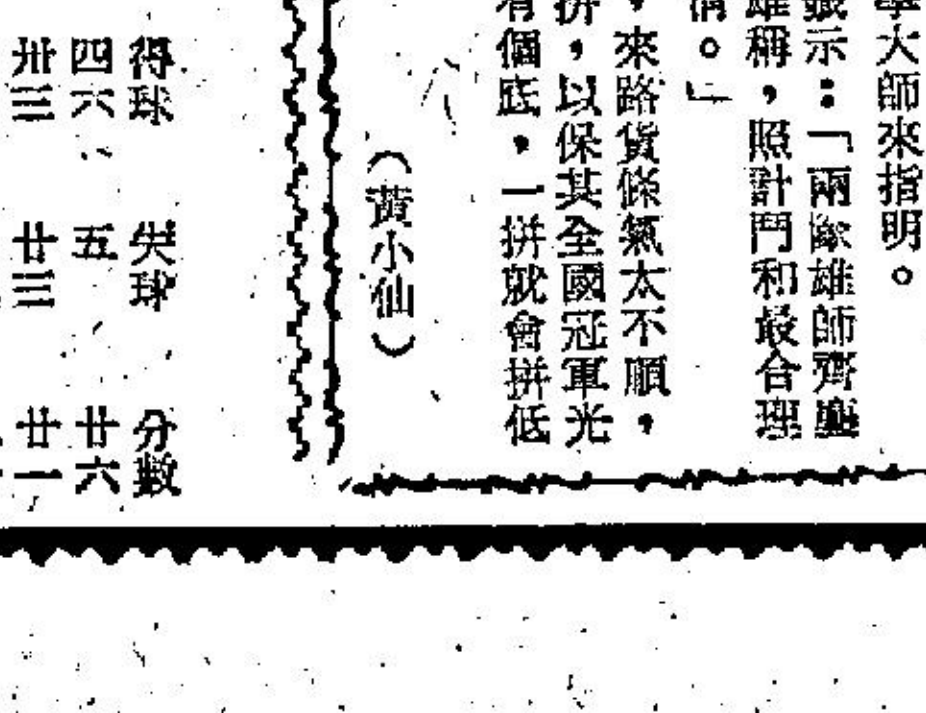 學大師來指明。
籤示：「兩隊雄師齊
雄稱，照計鬥和最合理
清。」
，來路貨條氣太不順，
拼，以保其全國冠軍光
有個底，一拼就會拼低
（黃小仙）
得球 失球 分數
四六 五 廿六
卅三 廿三 廿一